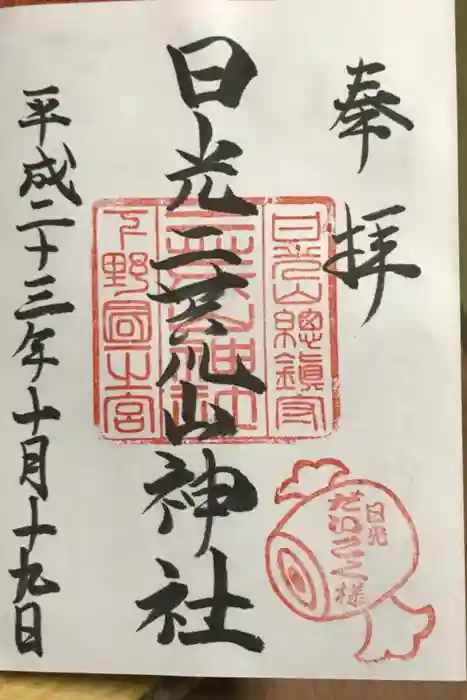 奉拝
日光二荒山神社
平成二十三年十月十九日
日光山總鎮守
二荒山神社
下野國一宮
日光
だいこく様